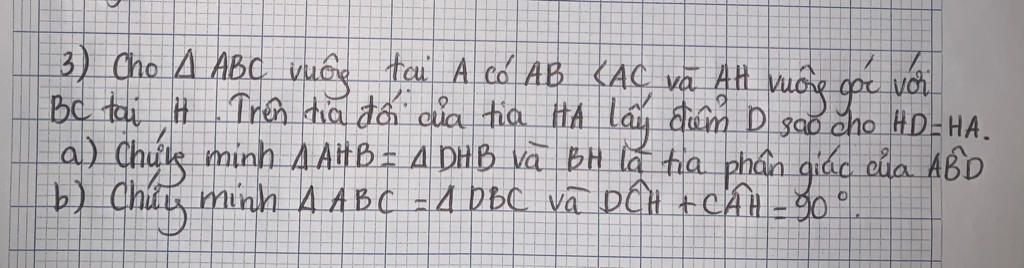 3) Cho Δ ABC vuông tại A có AB < AC và AH vuông góc với
BC tại H. Trên tia đối của tia HA lấy điểm D sao cho HD = HA.
a) Chứng minh Δ AHB = Δ DHB và BH là tia phân giác của AB̂D
b) Chứng minh Δ ABC = Δ DBC và DĈH + CÂH = 90°.